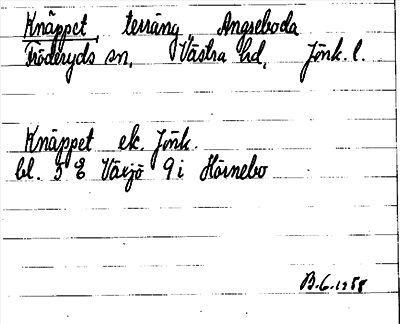 Knäppet, terräng, Angseboda
Fröderyds sn, Västra hd, Jönk. l.
Knäppet ek. Jönk.
bl. 5 E Växjö 9 i Hörnebo
B.6.1958